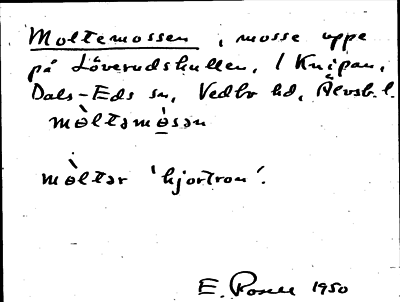 Moltemossen, mosse uppe
på Löverudskullen, 1 Knipan,
Dals-Eds sn, Vedbo hd, Älvsb. l.
mòltəmòsən
mòltər 'hjortron'.
E. Rosell 1950